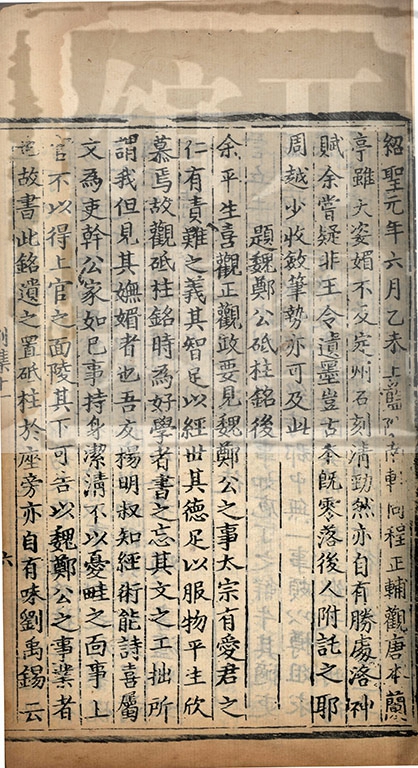 紹聖元年六月乙未上藍院南軒同程正輔觀唐本蘭
亭雖大姿媚不及定州石刻清勁然亦自有勝處落神
賦余嘗疑非王令遺墨豈古本既零落後人附託之耶
周越少收斂筆勢亦可及此
題魏鄭公砥柱銘後
余平生喜觀正觀政要見魏鄭公之事太宗有愛君之
仁有責難之義其智足以經世其德足以服物平生欣
慕焉故觀砥柱銘時為好學者書之忘其文之工拙所
謂我但見其嫵媚者也吾友楊明叔知經術能詩喜屬
文為吏幹公家如已事持身潔清不以憂畦之面事上
官不以得上官之面陵其下可告以魏鄭公之事業者
也故書此銘遺之置砥柱於座旁亦自有味劉禹錫云
別集十一
六